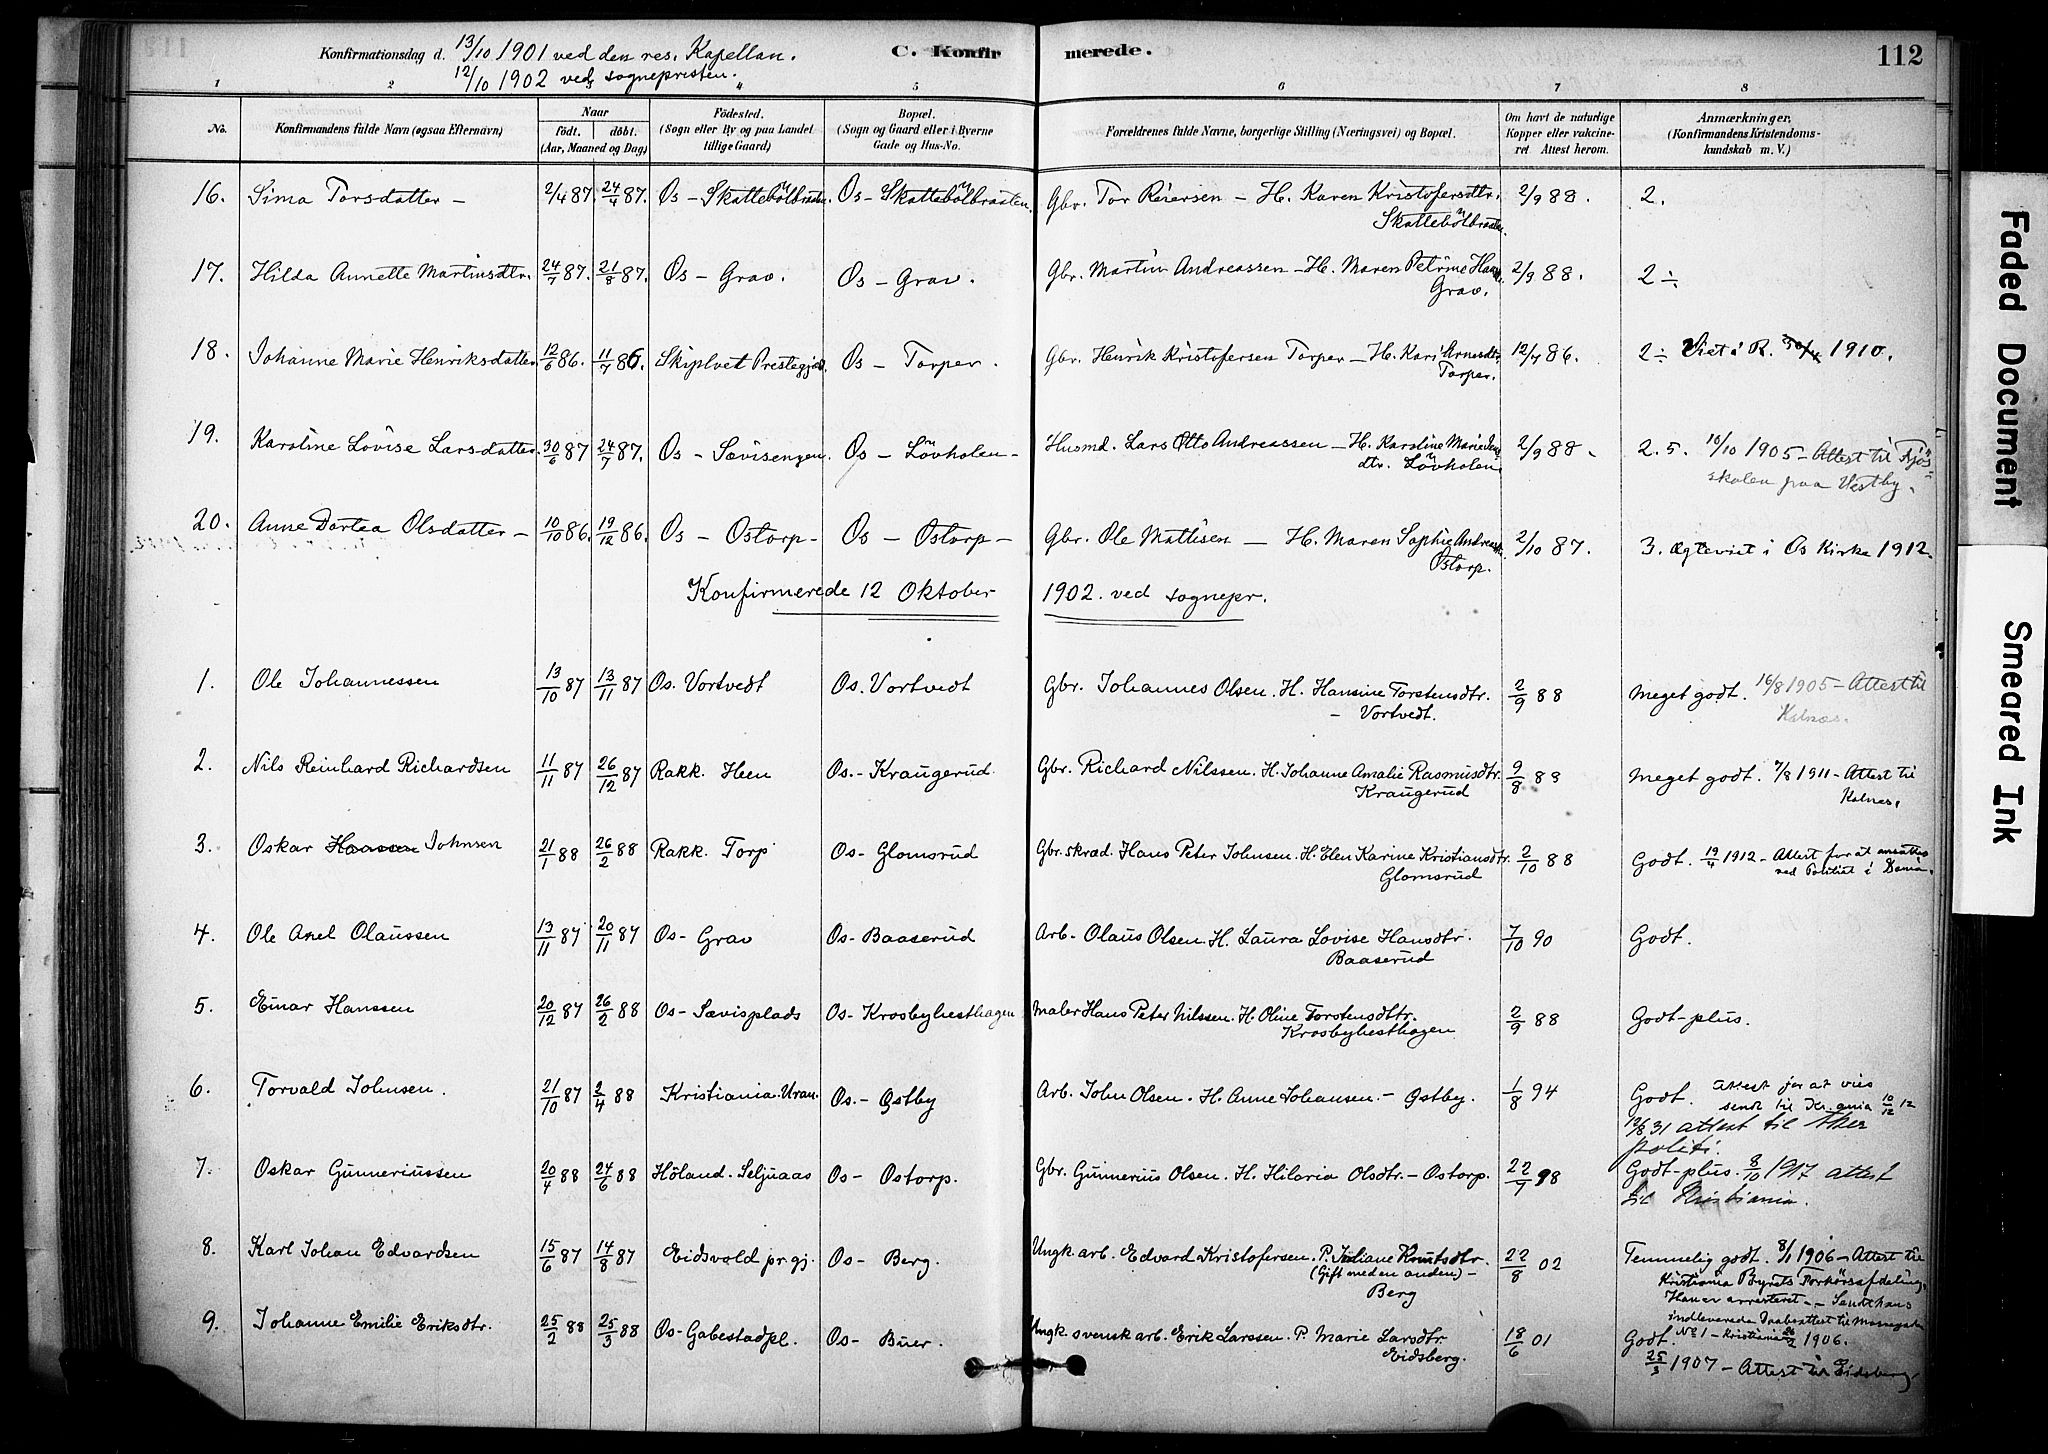 Konfirmationsdag d. 13/10 1901 ved den res. Kapellan. C. Konfirmerede. 112
12/10 1902 ved sognepresten.
1 2 4 6 7 8
No. Konfirmandens fulde Navn (ogsaa Efternavn) Naar født. døbt. (Aar, Maaned og Dag) Fødested. (Sogn eller By og paa Landet tillige Gaard) Bopæl. (Sogn og Gaard eller i Byerne Gade og Hus-No. Forældrenes fulde Navne, borgerlige Stilling (Næringsvei) og Bopæl. Om havt de naturlige Kopper eller vakcineret Attest herom. Anmærkninger, (Konfirmandens Kristendomskundskab m. V.)
16. Sima Torsdatter – 2/4 87. 24/4 87. Os – Skattebölbraaten. Os – Skattebölbraaten. Gbr. Tor Reiersen – H. Karen Kristofersdtr. 2/9 88. 2.
Skattebölbraaten.
17. Hilda Annette Martinsdtr. 24/7 87. 21/8 87. Os – Grav. Os – Grav. Gbr. Martin Andreassen – H. Maren Petrine 2/9 88. 2 ÷
Grav.
18. Johanne Marie Henriksdatter 12/6 86. 11/7 86. Skiptvet Prestegjrd. Os – Torper. Gbr. Henrik Kristofersen Torper – H. Kari Arnesdtr 12/7 86. 2 ÷ Viet i R. 30/4 1910.
Torper.
19. Karoline Lovise Larsdatter. 30/6 87 24/7 87. Os – Sævisengen. Os – Lövholen – Husmd. Lars Otto Andreassen – H. Karoline Marie 2/9 88. 2.5. 10/10 1905 – Attest til Fjös-
dtr. Lövholen skolen paa Vestby.
20. Anne Dortea Olsdatter – 10/10 86. 19/12 86. Os – Ostorp – Os – Ostorp – Gbr. Ole Mattisen – H. Maren Sophie 2/10 87. 3. Ægteviet i Os Kirke 1912.
Ostorp.
Konfirmerede 12 Oktober 1902. ved sognepr.
1. Ole Johannessen 13/10 87 13/11 87 Os. Vortvedt Os. Vortvedt Gbr. Johannes Olsen. H. Hansine Torstensdtr. 2/9 88 Meget godt. 16/8 1905 – Attest til
– Vortvedt. Kalnæs.
2. Nils Reinhard Richardsen 11/11 87 26/12 87 Rakk. Heen Os.- Kraugerud Gbr. Richard Nilssen. H. Johanne Amalie Rasmusdtr. 9/8 88 Meget godt. 7/8 1911 – Attest til
Kraugerud Kalnes.
3. Oskar Hanssen Johnsen 21/1 88 26/2 88 Rakk. Torp Os- Glomsrud Gbr. skræd. Hans Peter Johnsen. H. Elen Karine Kristiansdtr. 2/10 88 Godt. 19/4 1912 – Attest for at ansættes
Glomsrud ved Politiet i
4. Ole Axel Olaussen 13/11 87 20/11 87 Os- Grav Os- Baaserud Arb. Olaus Olsen. H. Laura Lovise Hansdtr. 7/10 90 Godt.
Baaserud
5. Einar Hanssen 20/12 87 26/2 88 Os- Sævisplads Os- Krosbyhesthagen Maler Hans Peter Nilssen. H. Oline Torstensdtr. 2/9 88 Godt-plus.
Krosbyhesthagen
6. Torvald Johnsen. 21/10 87 2/4 88 Kristiania. Uran. Os.- Østby Arb. John Olsen. H. Anne Johansen. – Østby. 1/8 94 Godt. Attest for at vies
sendt til Kr.ania 10/12 12
12/8 31 attest til Aker
politi.
7. Oskar Gunneriussen 20/4 88 24/6 88 Höland. Seljuaas Os- Ostorp. Gbr. Gunnerius Olsen. H. Hilaria Olsdtr. – Ostorp. 22/7 98 Godt-plus. 8/10 1917 attest
til Kristiania.
8. Karl Johan Edvardsen 15/6 87 14/8 87 Eidsvold pr.gj. Os- Berg. Ungk. arb. Edvard Kristofersen. P. Juliane Knutsdtr. 22/8 02 Temmelig godt. 8/1 1906 – Attest til
(Gift med en anden) – Kristiania Byrets Forhörsafdeling.
Berg Han er arresteret –
9. Johanne Emilie Eriksdtr. 25/2 88 25/3 88 Os- Gabestadpl. Os- Buer. Ungk. svensk arb. Erik Larssen. P. Marie Larsdtr. 18/6 01 Godt. No 1 – Kristiania 1906.
Eidsberg. 25/3 1907 – Attest til Eidsberg
Faded Document
Smeared Ink